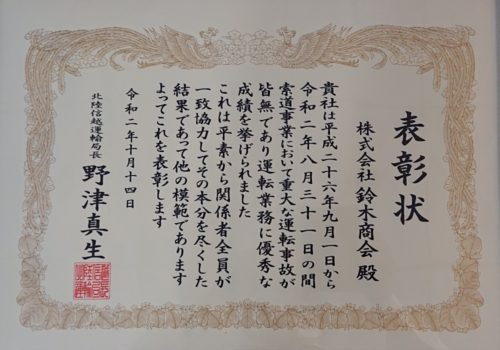 表彰状
株式会社 鈴木商会 殿
貴社は平成二十六年九月一日から
令和二年八月三十一日の間
索道事業において重大な運転事故が
皆無であり運転業務に優秀な
成績を挙げられました
これは平素から関係者全員が
一致協力してその本分を尽くした
結果であって他の模範であります
よってこれを表彰します
令和二年十月十四日
北陸信越運輸局長
野津真生